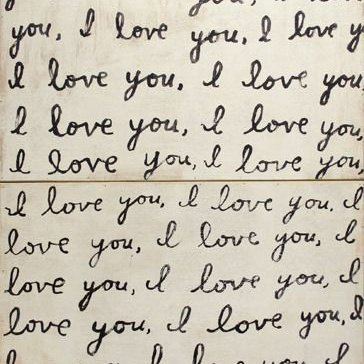 you, I love you, I love y
I love you, I love you
I love you, I love you,
I love you, I love you,
I love you, I love you, I
love you, I love you, I
love you, I love you, I
love you, I love you, I